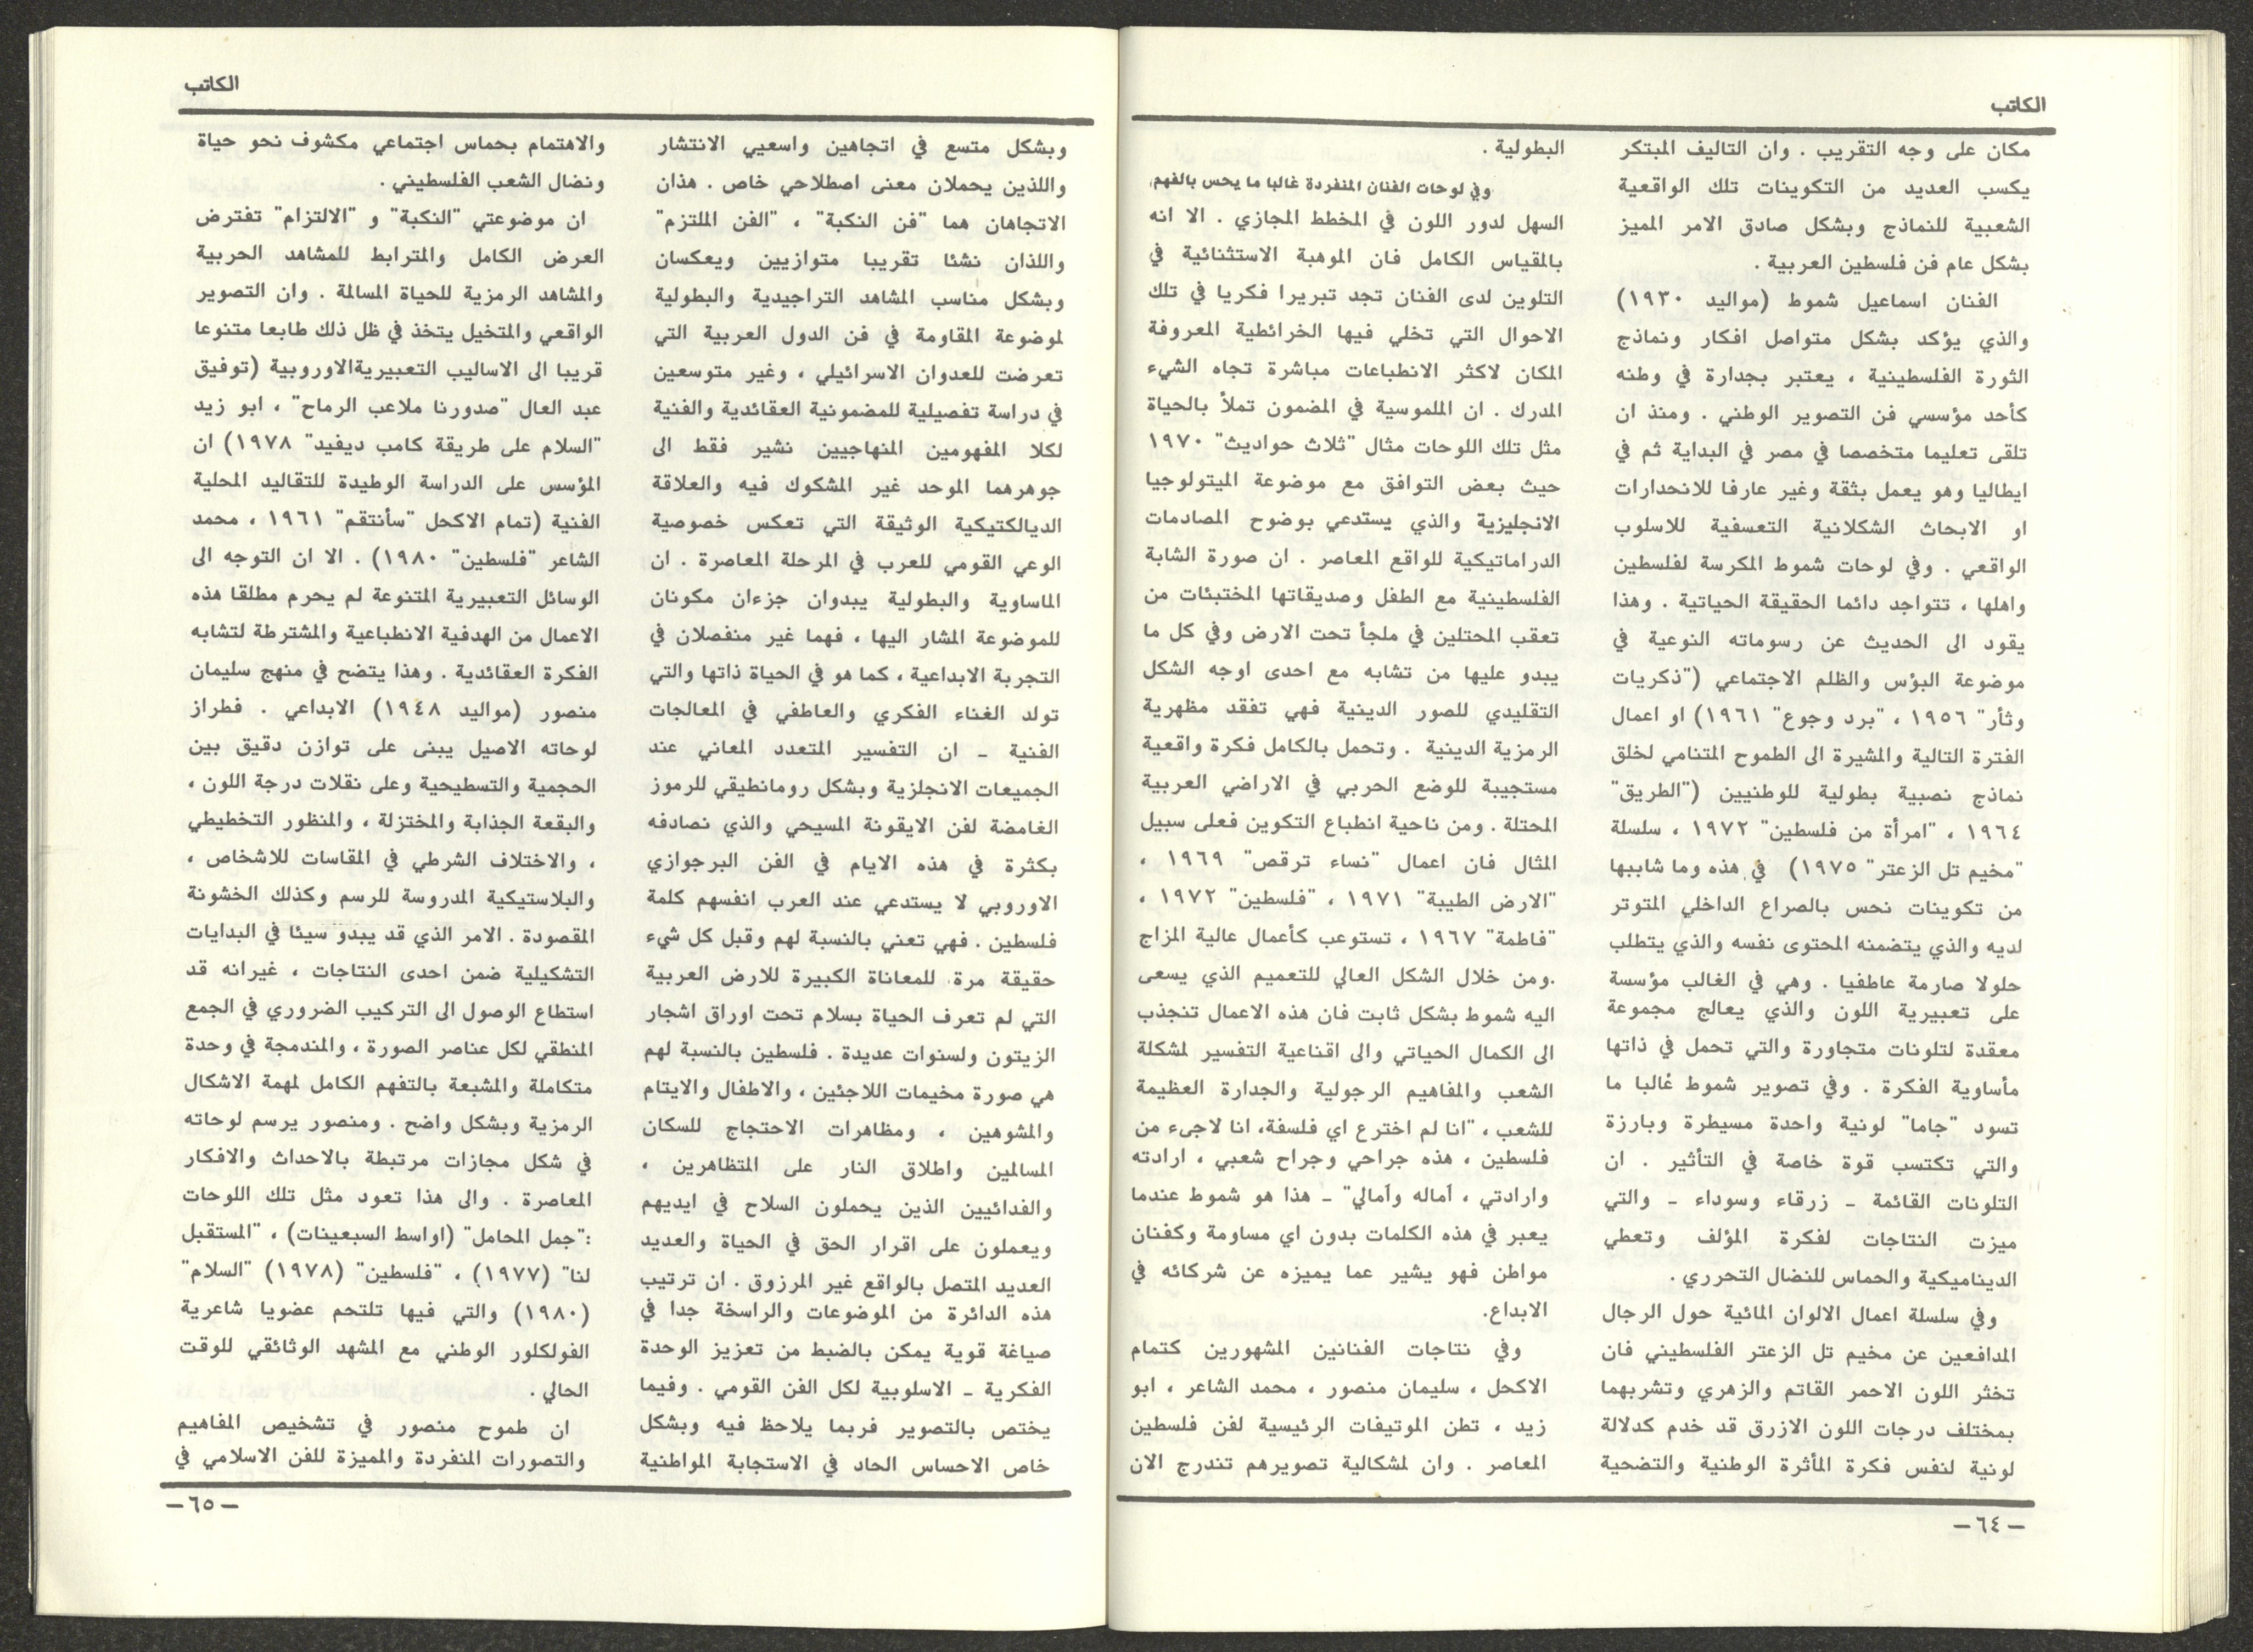 الكاتب
مكان على وجه التقريب . وان التاليف المبتكر
يكسب العديد من التكوينات تلك الواقعية
الشعبية للنماذج وبشكل صادق الامر المميز
بشكل عام فن فلسطين العربية .
الفنان اسماعيل شموط (مواليد ١٩٣٠)
والذي يؤكد بشكل متواصل افكار ونماذج
الثورة الفلسطينية ، يعتبر بجدارة في وطنه
كأحد مؤسسي فن التصوير الوطني . ومنذ ان
تلقى تعليما متخصصا في مصر في البداية ثم في
ايطاليا وهو يعمل بثقة وغير عارفا للانحدارات
او الابحاث الشكلانية التعسفية للاسلوب
الواقعي . وفي لوحات شموط المكرسة لفلسطين
واهلها ، تتواجد دائما الحقيقة الحياتية . وهذا
يقود الى الحديث عن رسوماته النوعية في
موضوعة البؤس والظلم الاجتماعي ("ذكريات
وثأر" ١٩٥٦ ، "برد وجوع" ١٩٦١) او اعمال
الفترة التالية والمشيرة الى الطموح المتنامي لخلق
نماذج نصبية بطولية للوطنيين ("الطريق"
١٩٦٤ ، "امرأة من فلسطين" ١٩٧٢ ، سلسلة
"مخيم تل الزعتر" ١٩٧٥) في هذه وما شابها
من تكوينات نحس بالصراع الداخلي المتوتر
لديه والذي يتضمنه المحتوى نفسه والذي يتطلب
حلولا صارمة عاطفيا . وهي في الغالب مؤسسة
على تعبيرية اللون والذي يعالج مجموعة
معقدة لتلونات متجاورة والتي تحمل في ذاتها
مأساوية الفكرة . وفي تصوير شموط غالبا ما
تسود "جاما" لونية واحدة مسيطرة وبارزة
والتي تكتسب قوة خاصة في التأثير . ان
التلونات القائمة ـ زرقاء وسوداء ـ والتي
ميزت النتاجات لفكرة المؤلف وتعطي
الديناميكية والحماس للنضال التحرري .
وفي سلسلة اعمال الالوان المائية حول الرجال
المدافعين عن مخيم تل الزعتر الفلسطيني فان
تخثر اللون الاحمر القاتم والزهري وتشربهما
بمختلف درجات اللون الازرق قد خدم كدلالة
لونية لنفس فكرة المأثرة الوطنية والتضحية
البطولية .
وفي لوحات الفنان المنفردة غالبا ما يحس بالفهم
السهل لدور اللون في المخطط المجازي . الا انه
بالمقياس الكامل فان الموهبة الاستثنائية في
التلوين لدى الفنان تجد تبريرا فكريا في تلك
الاحوال التي تخلي فيها الخرائطية المعروفة
المكان لاكثر الانطباعات مباشرة تجاه الشيء
المدرك . ان الملموسية في المضمون تملأ بالحياة
مثل تلك اللوحات مثال "ثلاث حواديث" ١٩٧٠
حيث بعض التوافق مع موضوعة الميتولوجيا
الانجليزية والذي يستدعي بوضوح المصادمات
الدراماتيكية للواقع المعاصر . ان صورة الشابة
الفلسطينية مع الطفل وصديقاتها المختبئات من
تعقب المحتلين في ملجأ تحت الارض وفي كل ما
يبدو عليها من تشابه مع احدى اوجه الشكل
التقليدي للصور الدينية فهي تفقد مظهرية
الرمزية الدينية . وتحمل بالكامل فكرة واقعية
مستجيبة للوضع الحربي في الاراضي العربية
المحتلة . ومن ناحية انطباع التكوين فعلى سبيل
المثال فان اعمال "نساء ترقص" ١٩٦٩ ،
"الارض الطيبة" ١٩٧١ ، "فلسطين" ١٩٧٢ ،
"فاطمة" ١٩٦٧ ، تستوعب كأعمال عالية المزاج
.ومن خلال الشكل العالي للتعميم الذي يسعى
اليه شموط بشكل ثابت فان هذه الاعمال تنجذب
الى الكمال الحياتي والى اقناعية التفسير لمشكلة
الشعب والمفاهيم الرجولية والجدارة العظيمة
للشعب ، "انا لم اخترع اي فلسفة، انا لاجىء من
فلسطين ، هذه جراحي وجراح شعبي ، ارادته
وارادتي ، آماله وآمالي" ـ هذا هو شموط عندما
يعبر في هذه الكلمات بدون اي مساومة وكفنان
مواطن فهو يشير عما يميزه عن شركائه في
الابداع.
وفي نتاجات الفنانين المشهورين كتمام
الاكحل ، سليمان منصور ، محمد الشاعر ، ابو
زيد ، تطن الموتيفات الرئيسية لفن فلسطين
المعاصر . وان لمشكالية تصويرهم تندرج الان
—٦٤—
الكاتب
وبشكل متسع في اتجاهين واسعيي الانتشار
واللذين يحملان معنى اصطلاحي خاص . هذان
الاتجاهان هما "فن النكبة" ، "الفن الملتزم"
واللذان نشئا تقريبا متوازيين ويعكسان
وبشكل مناسب المشاهد التراجيدية والبطولية
لموضوعة المقاومة في فن الدول العربية التي
تعرضت للعدوان الاسرائيلي ، وغير متوسعين
في دراسة تفصيلية للمضمونية العقائدية والفنية
لكلا المفهومين المنهاجيين نشير فقط الى
جوهرهما الموحد غير المشكوك فيه والعلاقة
الديالكتيكية الوثيقة التي تعكس خصوصية
الوعي القومي للعرب في المرحلة المعاصرة . ان
الماساوية والبطولية يبدوان جزءان مكونان
للموضوعة المشار اليها ، فهما غير منفصلان في
التجربة الابداعية ، كما هو في الحياة ذاتها والتي
تولد الغناء الفكري والعاطفي في المعالجات
الفنية ـ ان التفسير المتعدد المعاني عند
الجميعات الانجلزية وبشكل رومانطيقي للرموز
الغامضة لفن الايقونة المسيحي والذي نصادفه
بكثرة في هذه الايام في الفن البرجوازي
الاوروبي لا يستدعي عند العرب انفسهم كلمة
فلسطين . فهي تعني بالنسبة لهم وقبل كل شيء
حقيقة مرة للمعاناة الكبيرة للارض العربية
التي لم تعرف الحياة بسلام تحت اوراق اشجار
الزيتون ولسنوات عديدة . فلسطين بالنسبة لهم
هي صورة مخيمات اللاجئين ، والاطفال والايتام
والمشوهين ، ومظاهرات الاحتجاج للسكان
المسالمين واطلاق النار على المتظاهرين ،
والفدائيين الذين يحملون السلاح في ايديهم
ويعملون على اقرار الحق في الحياة والعديد
العديد المتصل بالواقع غير المرزوق . ان ترتيب
هذه الدائرة من الموضوعات والراسخة جدا في
صياغة قوية يمكن بالضبط من تعزيز الوحدة
الفكرية ـ الاسلوبية لكل الفن القومي . وفيما
يختص بالتصوير فربما يلاحظ فيه وبشكل
خاص الاحساس الحاد في الاستجابة المواطنية
والاهتمام بحماس اجتماعي مكشوف نحو حياة
ونضال الشعب الفلسطيني .
ان موضوعتي "النكبة" و "الالتزام" تفترض
العرض الكامل والمترابط للمشاهد الحربية
والمشاهد الرمزية للحياة المسالمة . وان التصوير
الواقعي والمتخيل يتخذ في ظل ذلك طابعا متنوعا
قريبا الى الاساليب التعبيريةالاوروبية (توفيق
عبد العال "صدورنا ملاعب الرماح" ، ابو زيد
"السلام على طريقة كامب ديفيد" ١٩٧٨) ان
المؤسس على الدراسة الوطيدة للتقاليد المحلية
الفنية (تمام الاكحل "سأنتقم" ١٩٦١ ، محمد
الشاعر "فلسطين" ١٩٨٠) . الا ان التوجه الى
الوسائل التعبيرية المتنوعة لم يحرم مطلقا هذه
الاعمال من الهدفية الانطباعية والمشترطة لتشابه
الفكرة العقائدية . وهذا يتضح في منهج سليمان
منصور (مواليد ١٩٤٨) الابداعي . فطراز
لوحاته الاصيل يبنى على توازن دقيق بين
الحجمية والتسطيحية وعلى نقلات درجة اللون ،
والبقعة الجذابة والمختزلة ، والمنظور التخطيطي
، والاختلاف الشرطي في المقاسات للاشخاص ،
والبلاستيكية المدروسة للرسم وكذلك الخشونة
المقصودة . الامر الذي قد يبدو سيئا في البدايات
التشكيلية ضمن احدى النتاجات ، غيرانه قد
استطاع الوصول الى التركيب الضروري في الجمع
المنطقي لكل عناصر الصورة ، والمندمجة في وحدة
متكاملة والمشبعة بالتفهم الكامل لمهمة الاشكال
الرمزية وبشكل واضح . ومنصور يرسم لوحاته
في شكل مجازات مرتبطة بالاحداث والافكار
المعاصرة . والى هذا تعود مثل تلك اللوحات
:"جمل المحامل" (اواسط السبعينات) ، "المستقبل
لنا" (١٩٧٧) ، "فلسطين" (١٩٧٨) "السلام"
(١٩٨٠) والتي فيها تلتحم عضويا شاعرية
الفولكلور الوطني مع المشهد الوثائقي للوقت
الحالي .
ان طموح منصور في تشخيص المفاهيم
والتصورات المنفردة والمميزة للفن الاسلامي في
—٦٥—